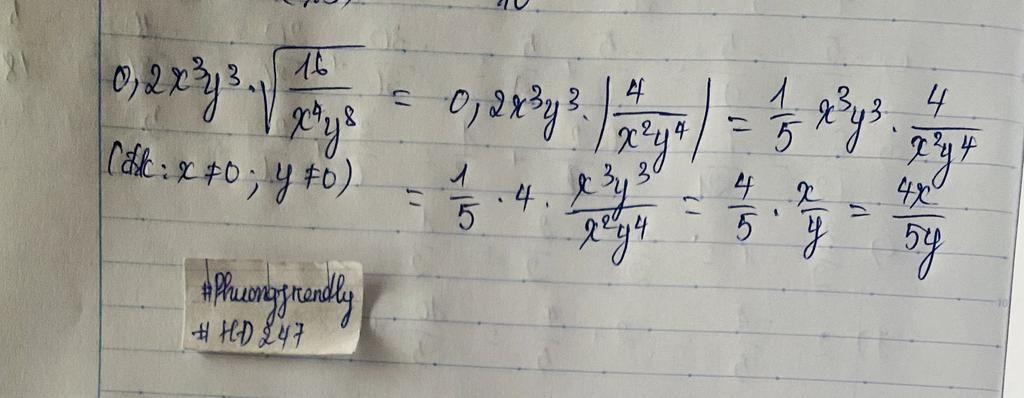 0,2x³y³.√(16/(x⁴y⁸)) = 0,2x³y³.|4/(x²y⁴)| = 1/5 x³y³ . 4/(x²y⁴)
(đk: x ≠ 0; y ≠ 0)
= 1/5 . 4 . x³y³/(x²y⁴) = 4/5 . x/y = 4x/5y
#Phuongfriendly
# HD247